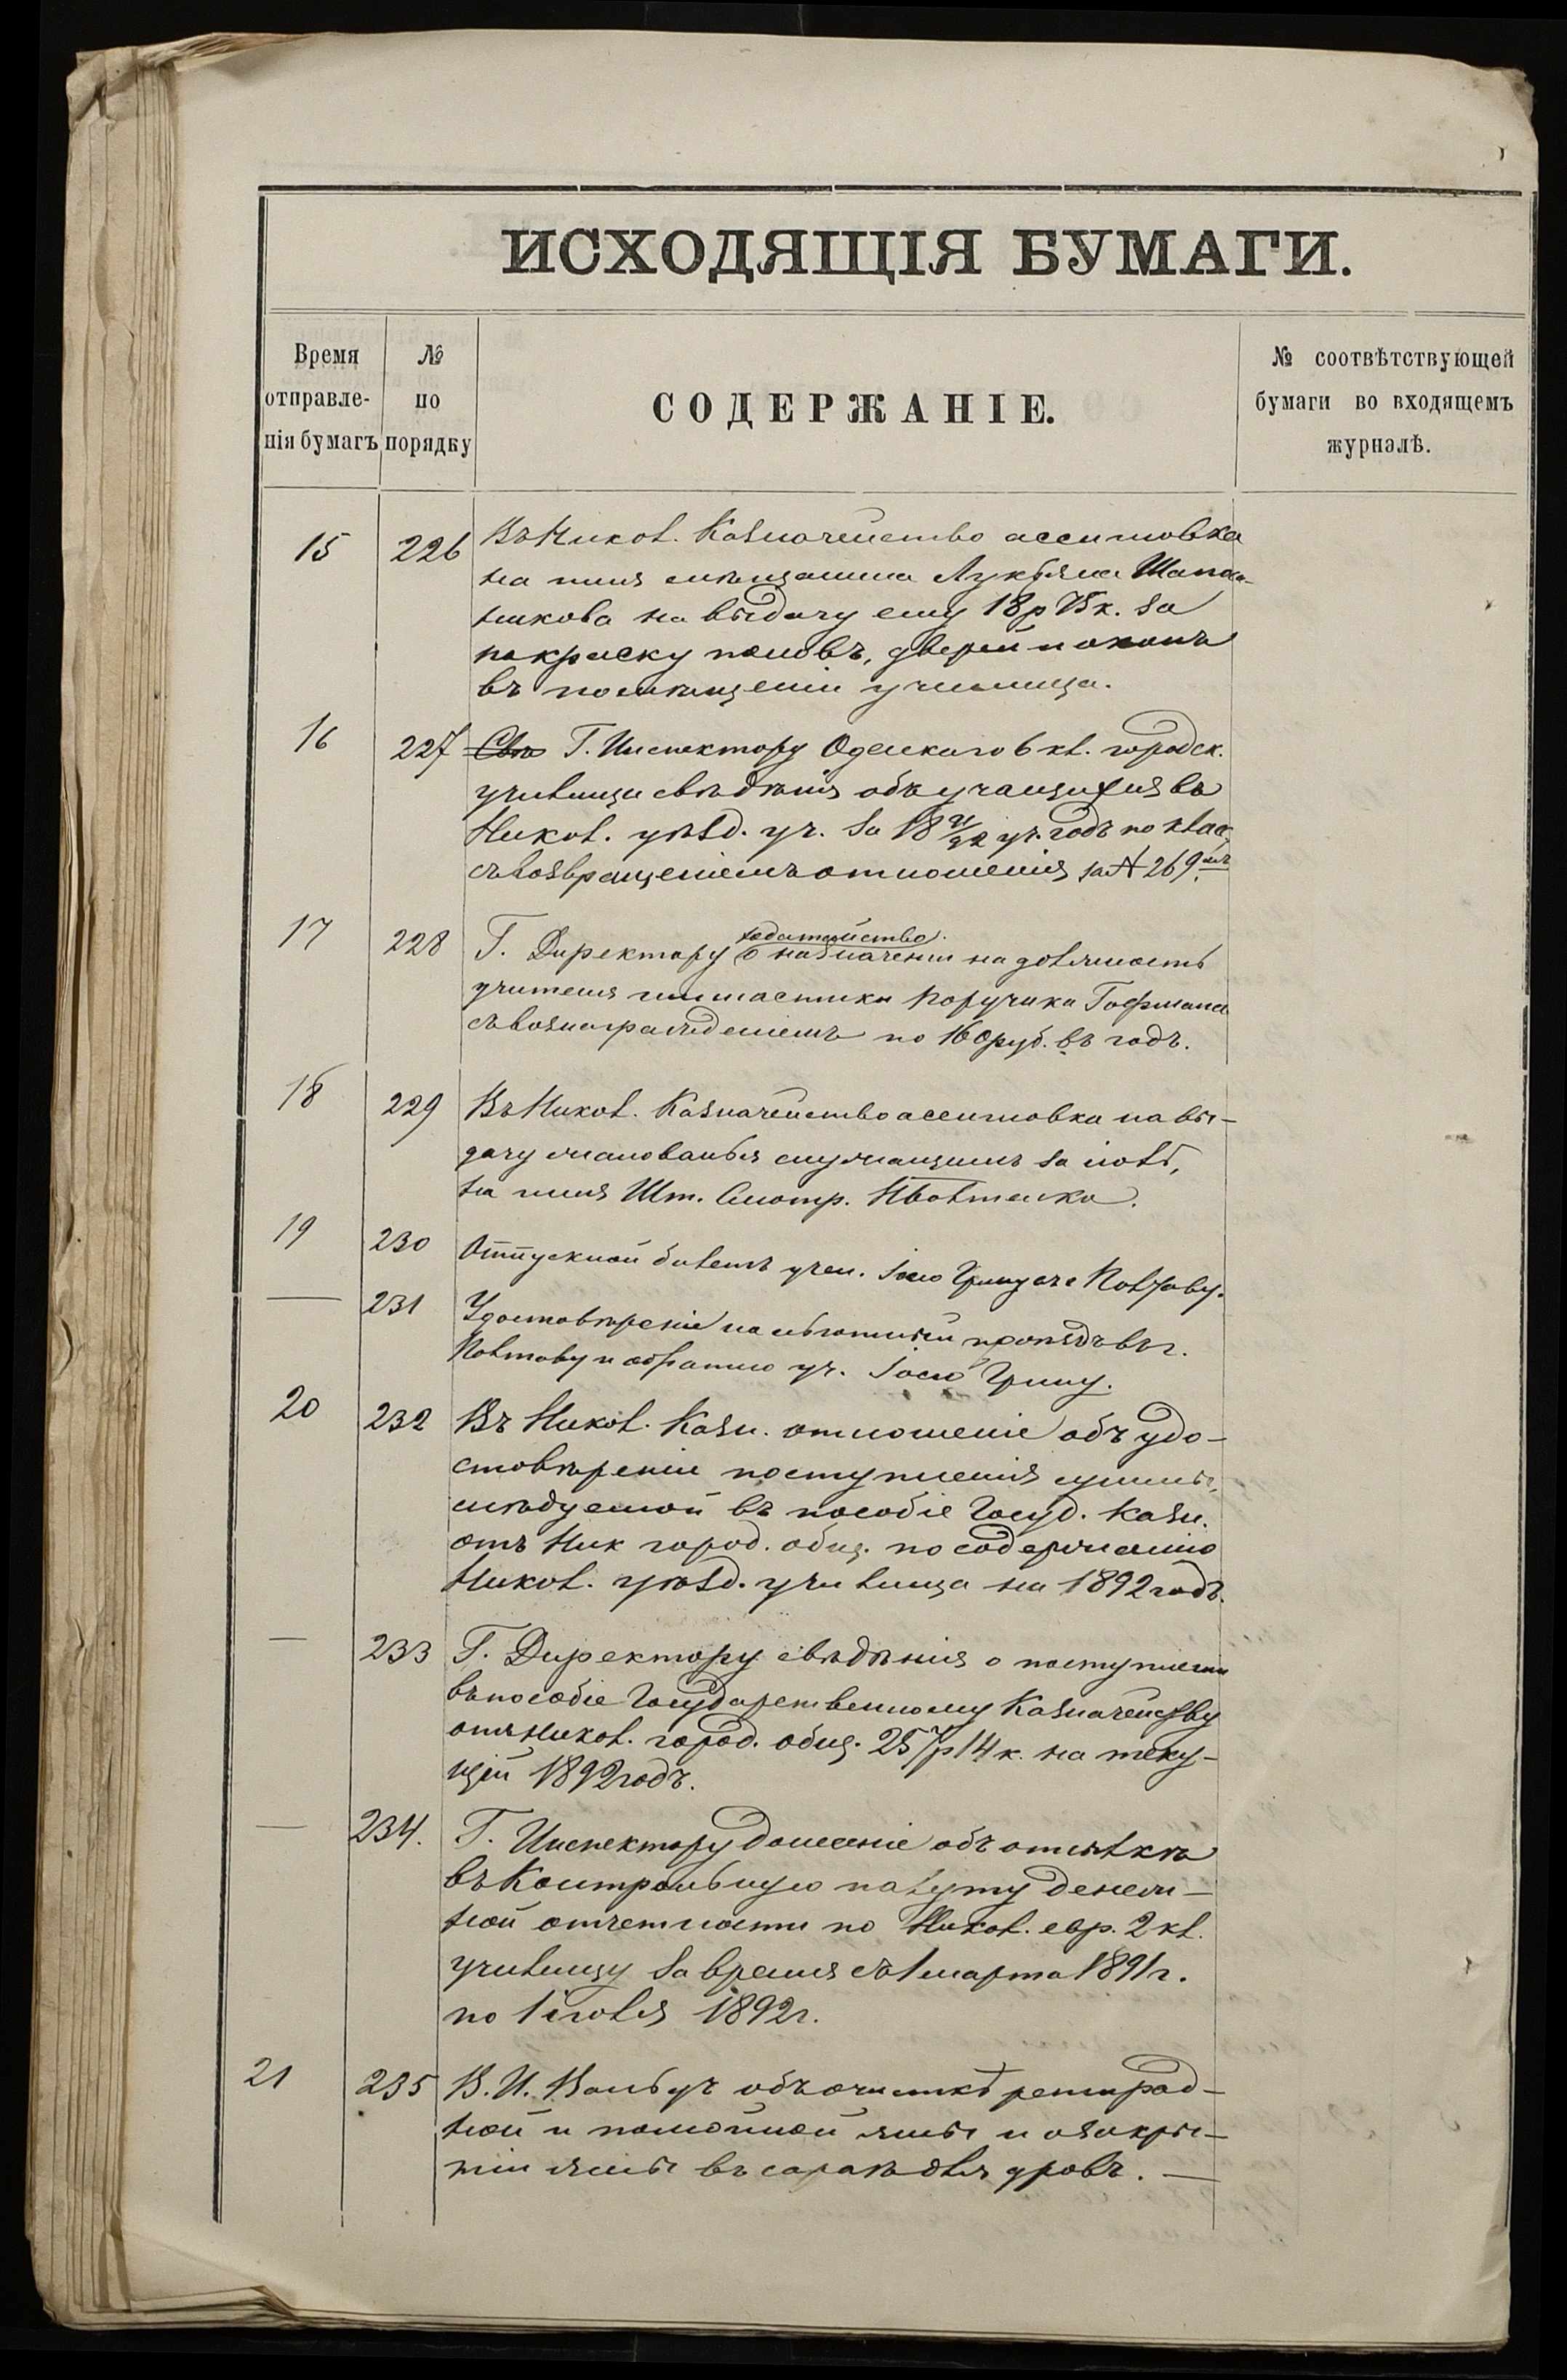 ИСХОДЯЩІЯ БУМАГИ.
Время отправле-нія бумагъ
№ по порядку
СОДЕРЖАНІЕ.
№ соотвѣтствующей бумаги во входящемъ журналѣ.
15 226 Въ Никол. Казначейство ассигновка
на имя мѣщанина Лукьяна
на выдачу ему 18р к. за
покраску половъ, дверей и оконъ
въ помѣщеніи училища.
16 227 Г. Инспектору Одесскаго 6 кл. городск.
училища свѣдѣнія объ учащихся въ
Никол. уѣзд. уч. за 18 91/92 уч. годъ по клас.
съ возвращеніемъ отношенія за № 269.
17 228 Г. Директору ходатайство о назначеніи на должность
учителя гимнастики поручика Гофмана
съ вознагражденіемъ по 160 руб. въ годъ.
18 229 Въ Никол. Казначейство ассигновка на вы-
дачу жалованья служащимъ за іюль,
на имя Шт. Смотр.
19 230 Отпускной билетъ учен.
— 231 Удостовѣреніе на льготный проѣздъ въ г.
Полтаву и обратно уч.
20 232 Въ Никол. Казн. отношеніе объ удо-
стовѣреніи поступленія суммы,
слѣдуемой въ пособіе Госуд. Казн.
отъ Ник город. общ. по содержанію
Никол. уѣзд. училища на 1892 годъ.
— 233 Г. Директору свѣдѣнія о поступленіи
въ пособіе Государственному Казначейству
отъ Никол. город. общ. 257р 14 к. на теку-
щій 1892 годъ.
— 234. Г. Инспектору донесеніе объ отсылкѣ
въ Контрольную палату денеж-
ной отчетности по Никол. евр. 2 кл.
училищу за время съ 1 марта 1891 г.
по 1 іюля 1892 г.
21 235 В. И. объ очисткѣ ретирад-
ной и помойной ямы и о закры-
тіи ямы въ сараѣ для дровъ. —